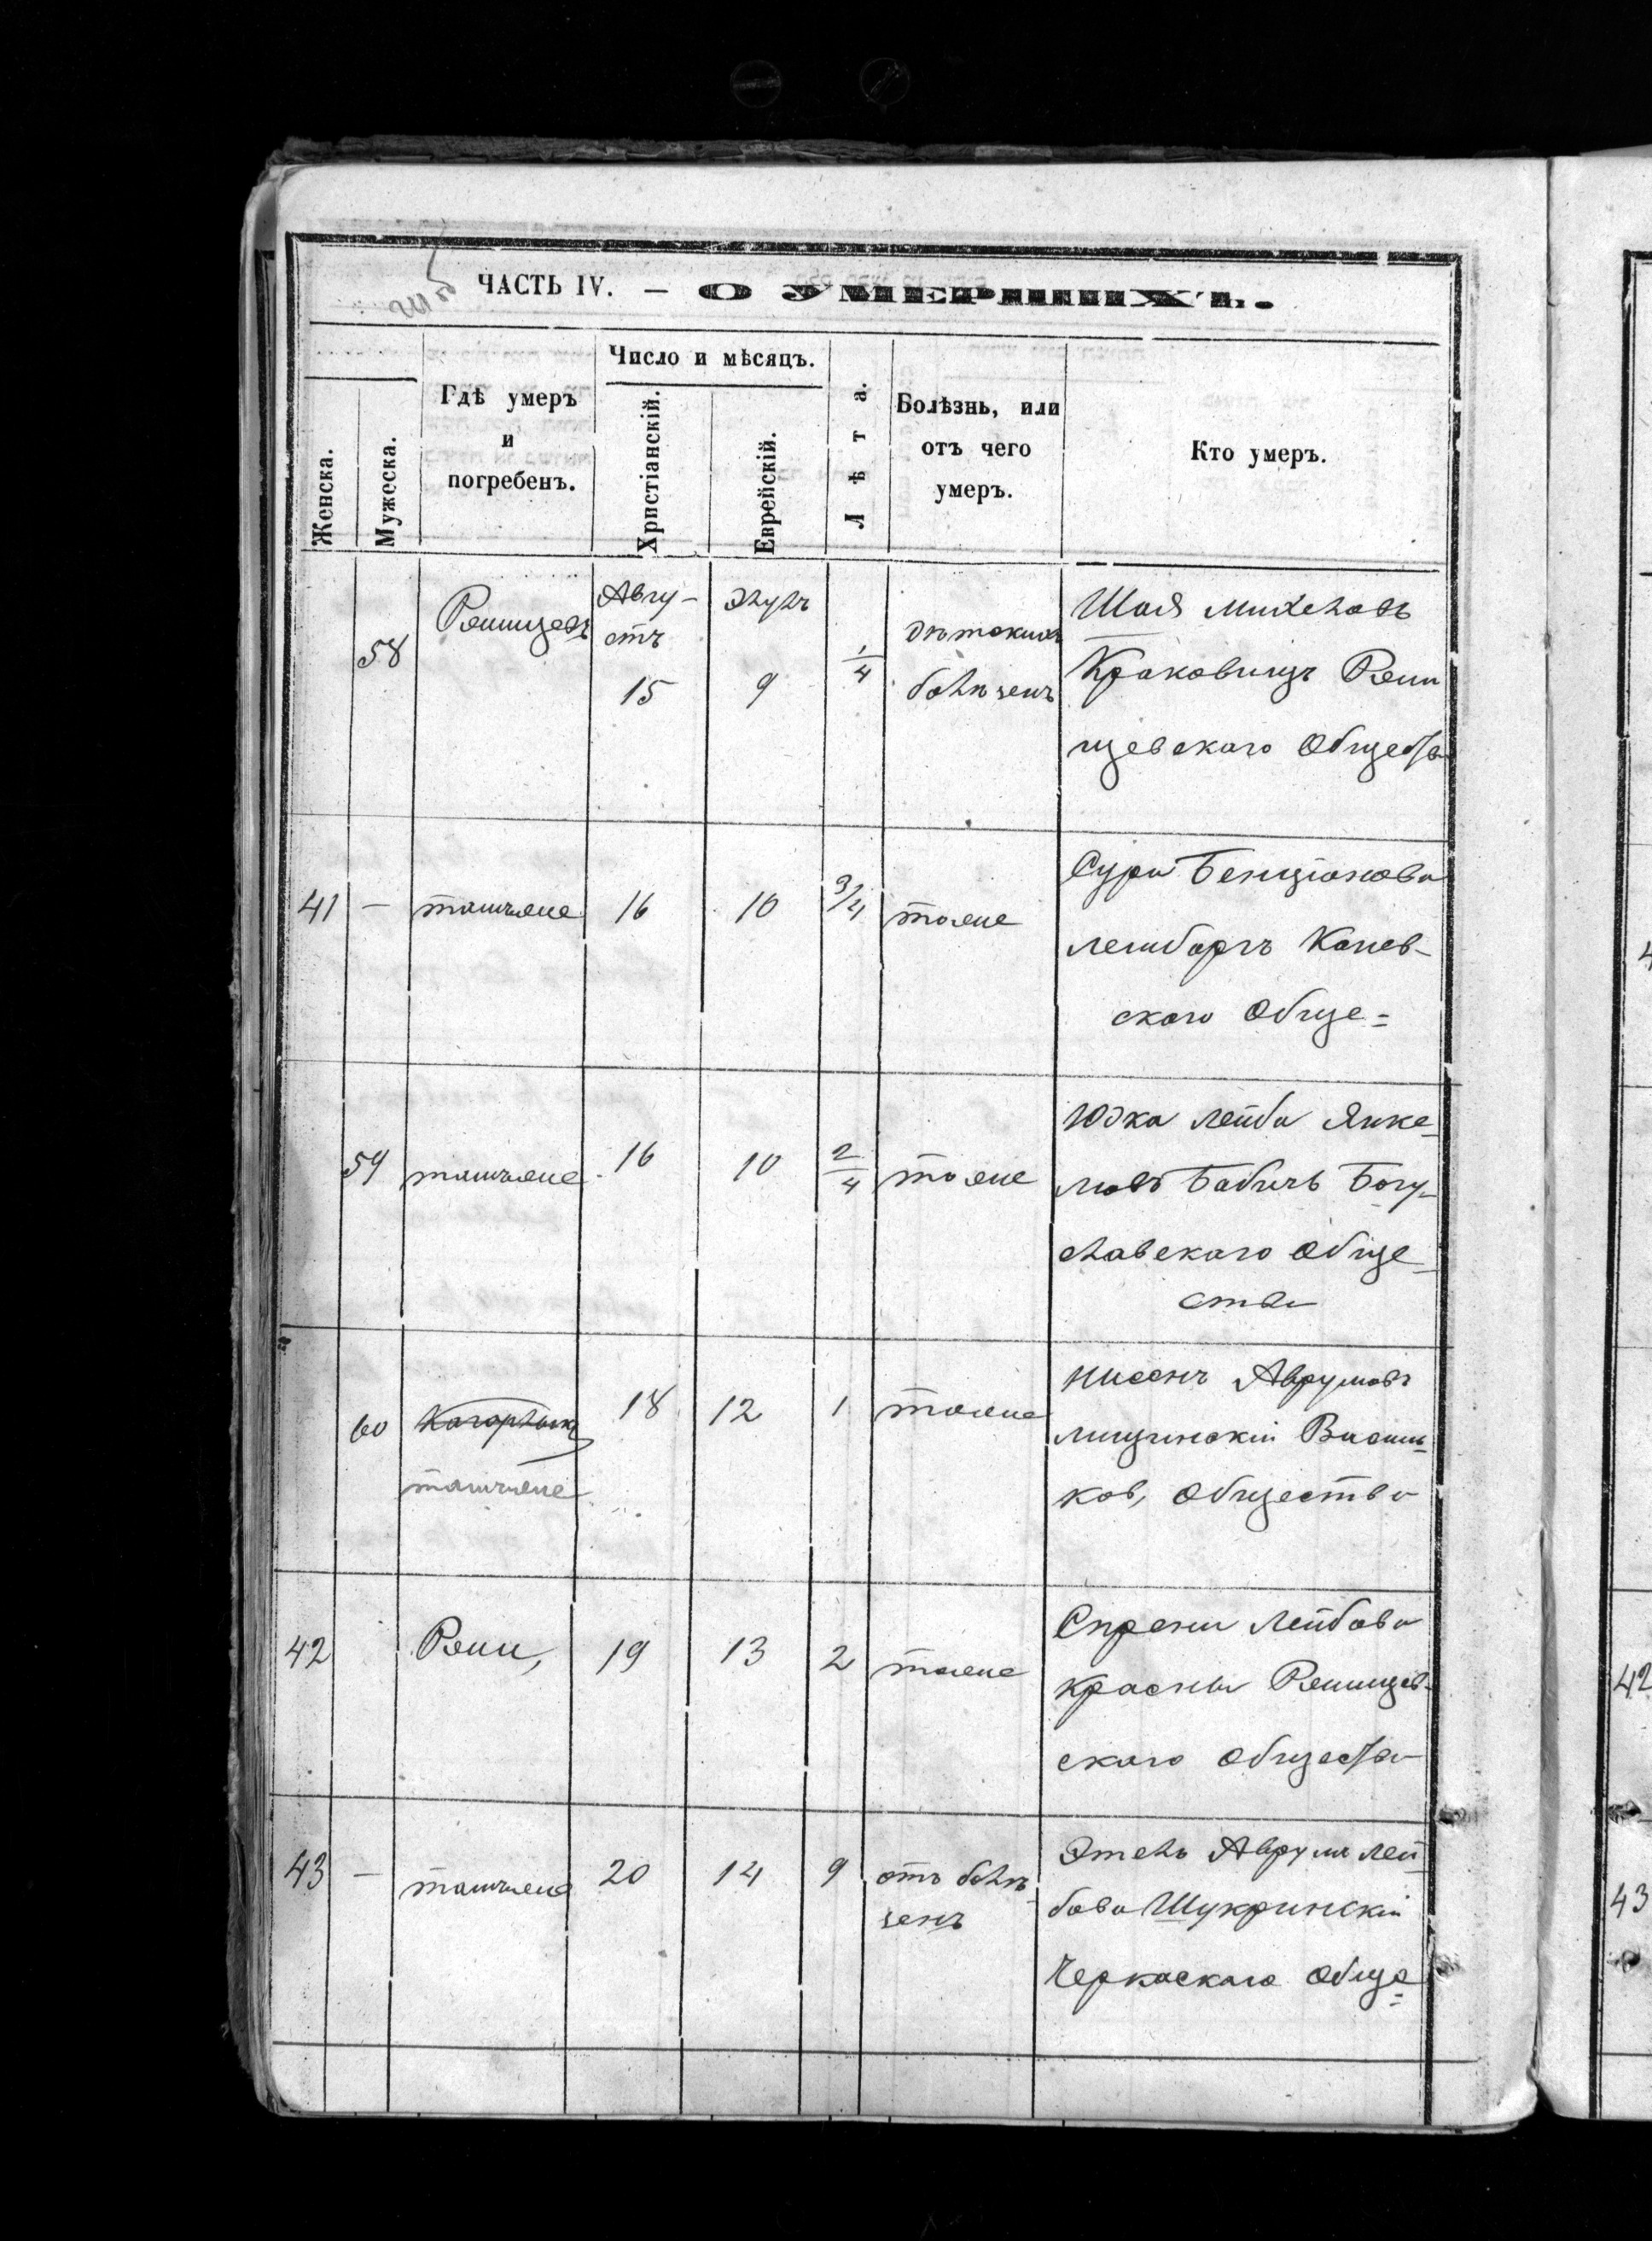 ЧАСТЬ IV. — О УМЕРШИХЪ.
Женска.
Мужеска.
Гдѣ умеръ
и
погребенъ.
Число и мѣсяцъ.
Христіанскій.
Еврейскій.
Лѣта.
Болѣзнь, или
отъ чего
умеръ.
Кто умеръ.
58
Ржищевъ
Авгу-
стъ
15
Элулъ
9
1/4
болѣзень
Шая Михеловъ
Краковицъ Ржи
щевскаго Общества
41 —
тамжеже
16
10
3/4
тоже
Сура Бенціонова
Лембаргъ Канев-
скаго Обще=
59
тамжеже
16
10
2/4
тоже
Юдка Лейба Янке-
левъ Бабичъ Богу-
славскаго Обще-
ства
60
тамжеже
18
12
1
тоже
Нисонъ Аврумовъ
ков, Общества
42
Ржи,
19
13
2
тоже
Лейбова
Красна Ржищев-
скаго Общества
43 —
тамжеже
20
14
9
отъ болѣ-
зень
Этель Аврумъ Лей-
бова Шукринскій
Черкаскаго Обще=
4
42
43